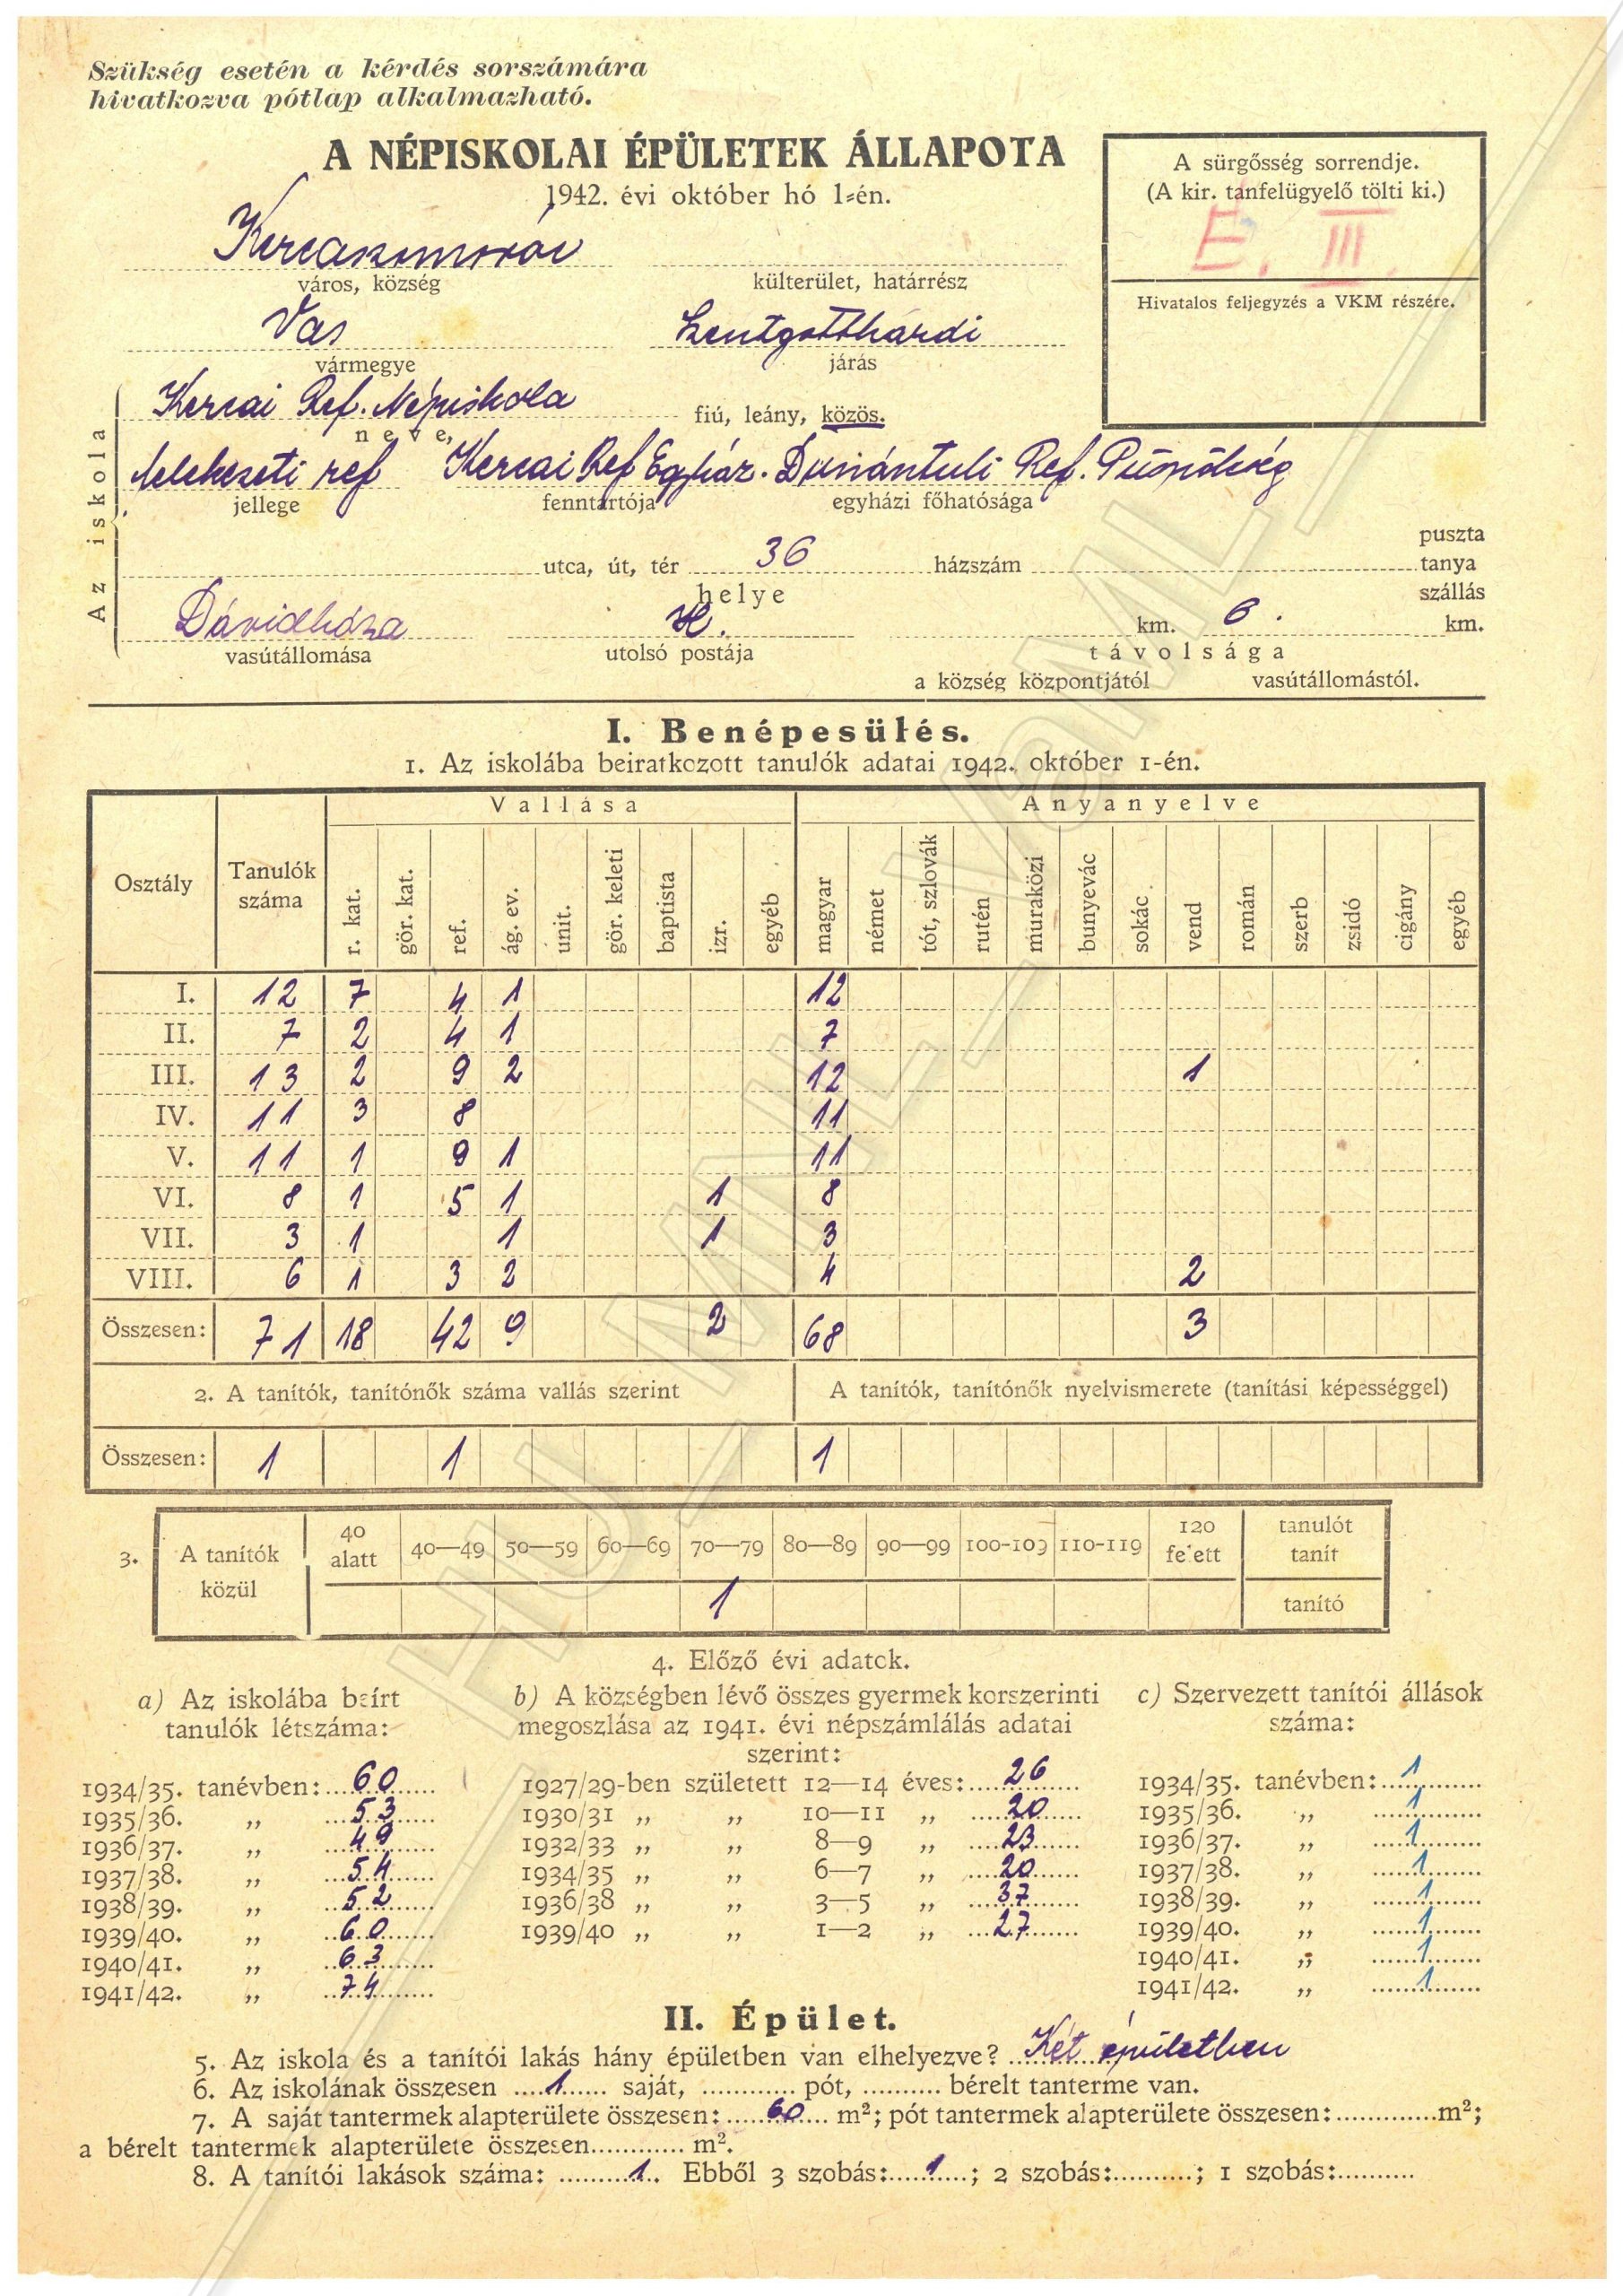 Szükség esetén a kérdés sorszámára
hivatkozva pótlap alkalmazható.
A NÉPISKOLAI ÉPÜLETEK ÁLLAPOTA
1942. évi október hó 1-én.
A sürgősség sorrendje.
(A kir. tanfelügyelő tölti ki.)
E. III.
Hivatalos feljegyzés a VKM részére.
Kercaszomor
város, község külterület, határrész
Vas Szentgotthárdi
vármegye járás
Az iskola
Kercai Ref. Népiskola fiú, leány, közös.
neve,
felekezeti ref Kercai Ref Egyház. Dunántuli Ref. Püspökség
jellege fenntartója egyházi főhatósága
utca, út, tér 36 házszám puszta tanya szállás
helye
Dávidháza H. km. 6. km.
vasútállomása utolsó postája távolsága
a község központjától vasútállomástól.
I. Benépesülés.
1. Az iskolába beiratkozott tanulók adatai 1942. október 1-én.
Osztály Tanulók száma Vallása Anyanyelve
r. kat. gör. kat. ref. ág. ev. unit. gör. keleti baptista izr. egyéb magyar német tót, szlovák rutén muraközi bunyevác sokác vend román szerb zsidó cigány egyéb
I. 12 7 4 1 12
II. 7 2 4 1 7
III. 13 2 9 2 12 1
IV. 11 3 8 11
V. 11 1 9 1 11
VI. 8 1 5 1 1 8
VII. 3 1 1 1 3
VIII. 6 1 3 2 4 2
Összesen: 71 18 42 9 2 68 3
2. A tanítók, tanítónők száma vallás szerint A tanítók, tanítónők nyelvismerete (tanítási képességgel)
Összesen: 1 1 1
3. A tanítók közül 40 alatt 40—49 50—59 60—69 70—79 80—89 90—99 100-109 110-119 120 felett tanulót tanít
1 tanító
4. Előző évi adatok.
a) Az iskolába beírt
tanulók létszáma:
1934/35. tanévben: 60
1935/36. „ 53
1936/37. „ 49
1937/38. „ 54
1938/39. „ 52
1939/40. „ 60
1940/41. „ 63
1941/42. „ 74
b) A községben lévő összes gyermek korszerinti
megoszlása az 1941. évi népszámlálás adatai
szerint:
1927/29-ben született 12—14 éves: 26
1930/31 „ „ 10—11 „ 20
1932/33 „ „ 8—9 „ 23
1934/35 „ „ 6—7 „ 20
1936/38 „ „ 3—5 „ 37
1939/40 „ „ 1—2 „ 27
c) Szervezett tanítói állások
száma:
1934/35. tanévben: 1
1935/36. „ 1
1936/37. „ 1
1937/38. „ 1
1938/39. „ 1
1939/40. „ 1
1940/41. „ 1
1941/42. „ 1
II. Épület.
5. Az iskola és a tanítói lakás hány épületben van elhelyezve? Két épületben
6. Az iskolának összesen 1 saját, pót, bérelt tanterme van.
7. A saját tantermek alapterülete összesen: 60 m²; pót tantermek alapterülete összesen: m²;
a bérelt tantermek alapterülete összesen m².
8. A tanítói lakások száma: 1. Ebből 3 szobás: 1; 2 szobás: ; 1 szobás:
HU_MNL_VaML